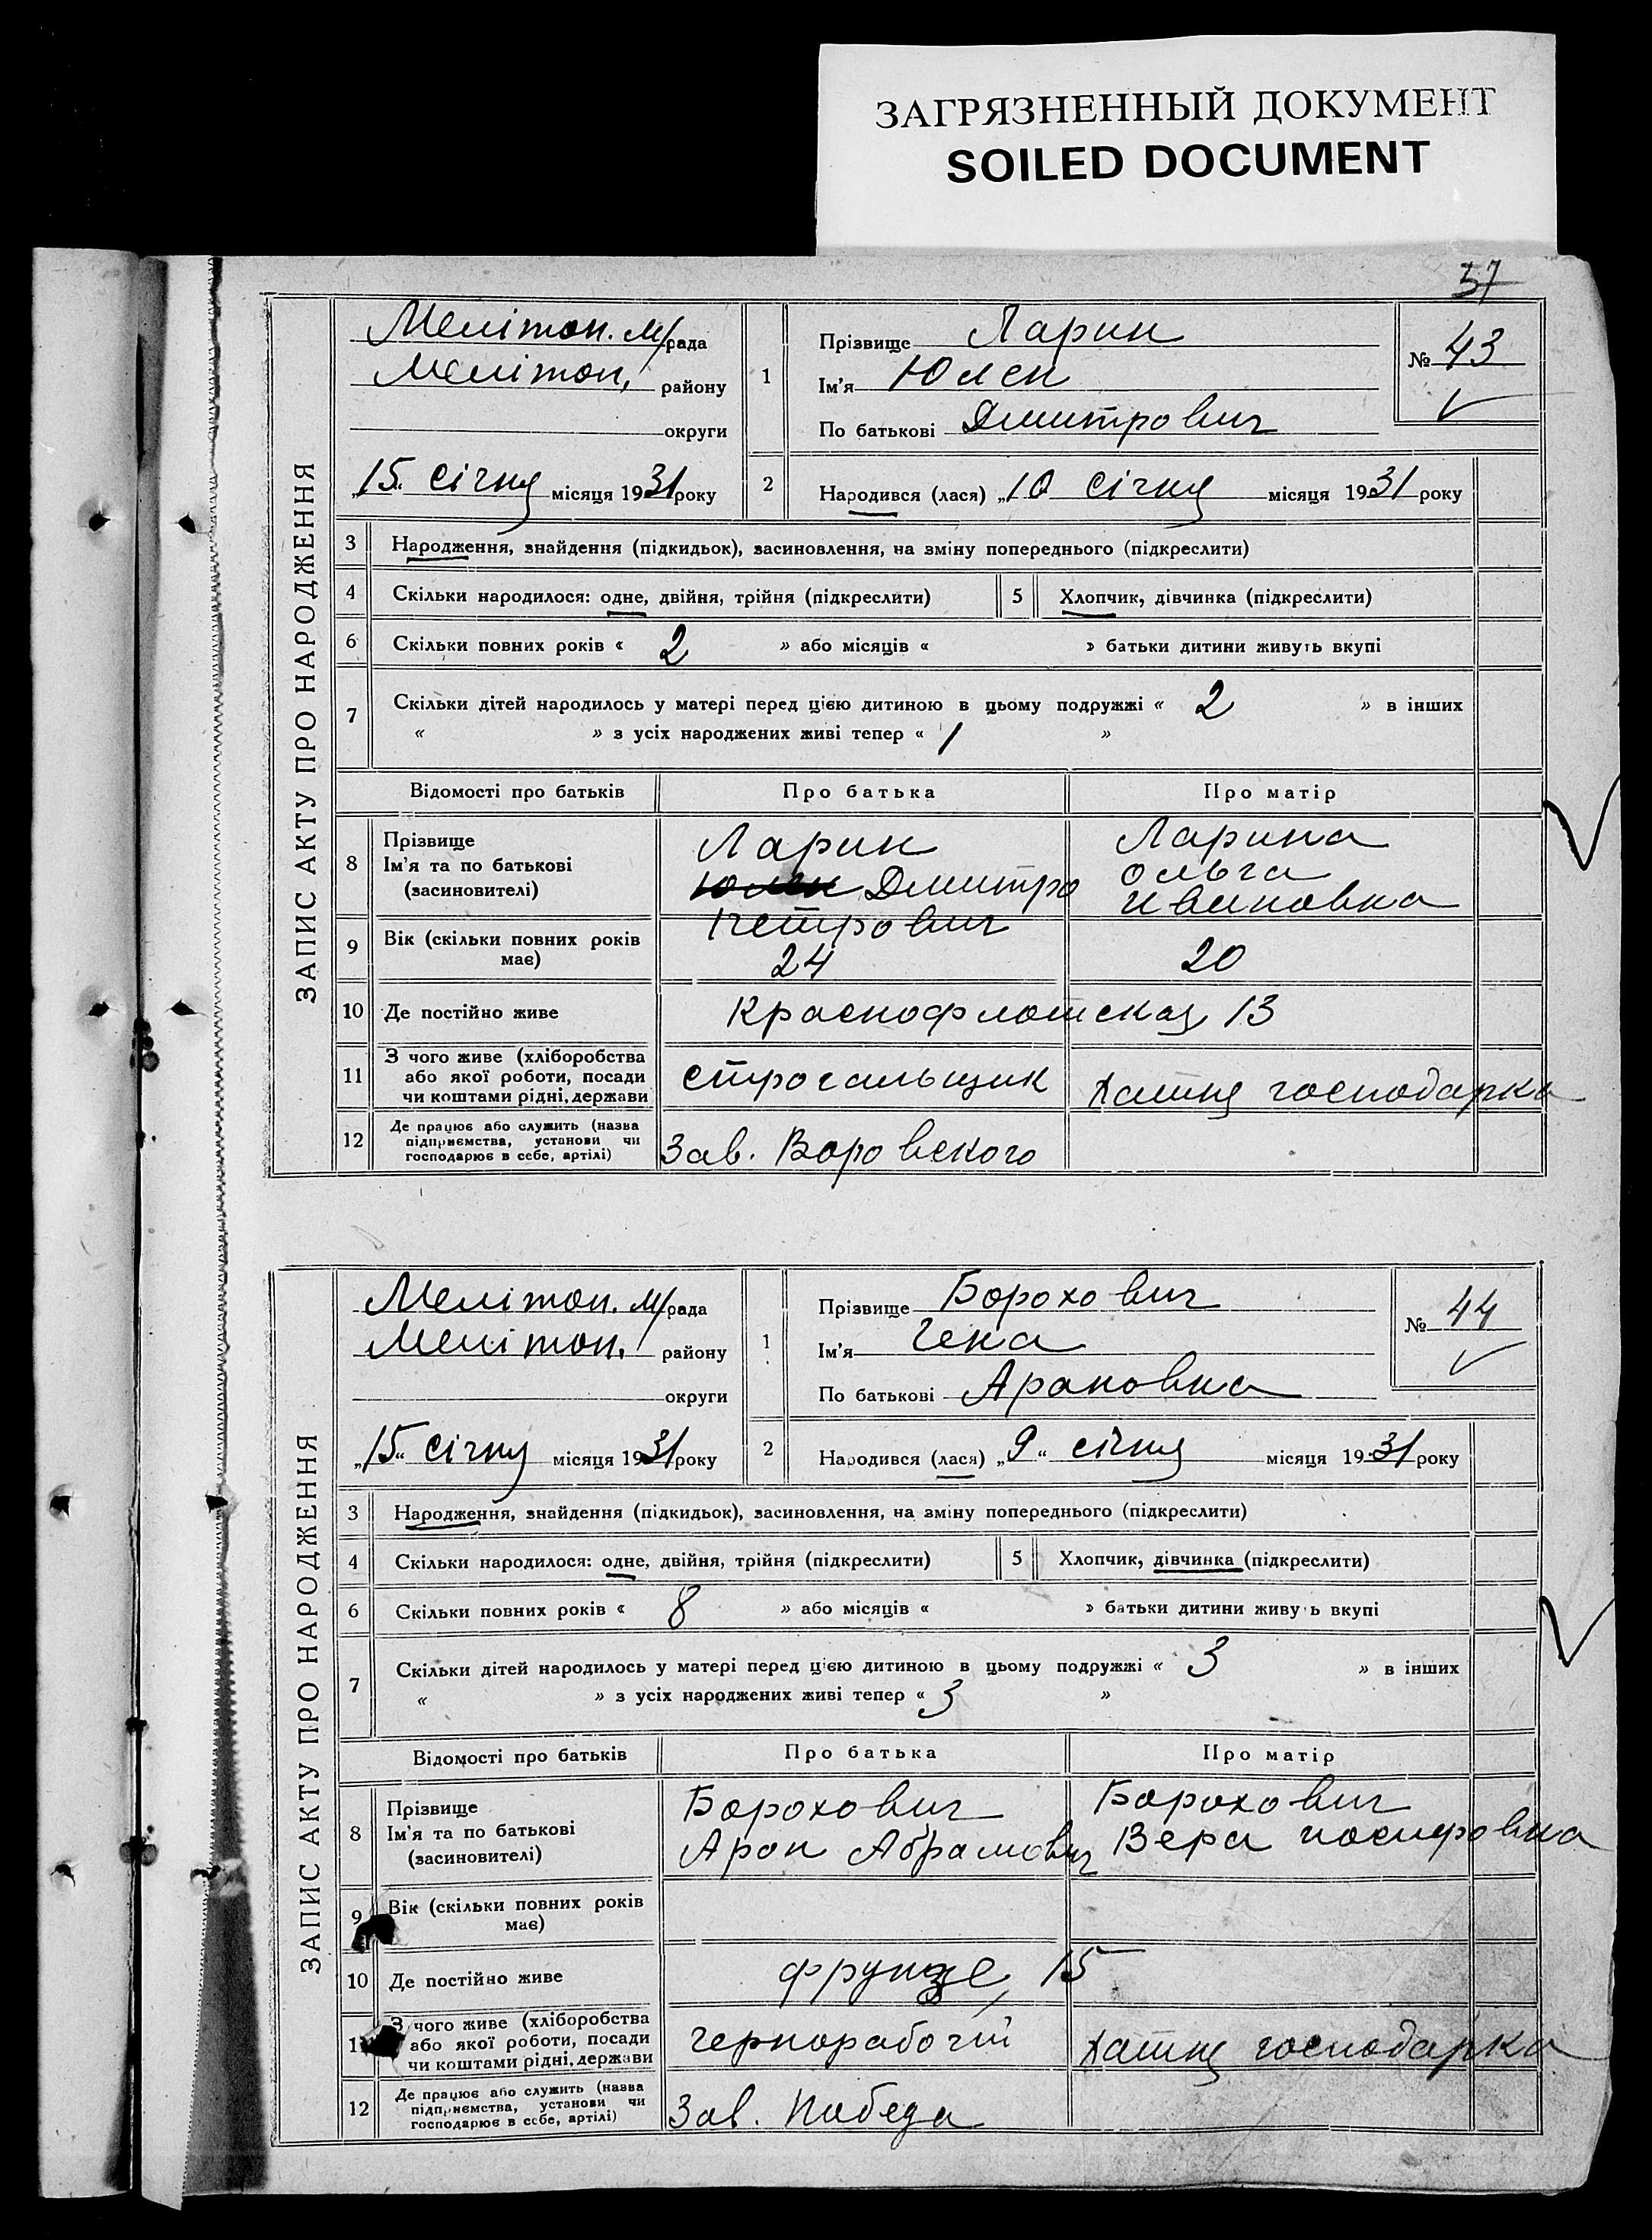 ЗАГРЯЗНЕННЫЙ ДОКУМЕНТ
SOILED DOCUMENT
57
ЗАПИС АКТУ ПРО НАРОДЖЕННЯ
Мелітоп. м/рада
Мелітоп. району
округи
„15“ січня місяця 1931 року
1
Прізвище Ларин
Ім'я Юлен
По батькові Дмитрович
№ 43
2
Народився (лася) „10 січня місяця 1931 року
3 Народження, знайдення (підкидьок), засиновлення, на зміну попереднього (підкреслити)
4 Скільки народилося: одне, двійня, трійня (підкреслити) 5 Хлопчик, дівчинка (підкреслити)
6 Скільки повних років « 2 » або місяців « » батьки дитини живуть вкупі
7 Скільки дітей народилось у матері перед цією дитиною в цьому подружжі « 2 » в інших
« » з усіх народжених живі тепер « 1 »
Відомості про батьків Про батька Про матір
8 Прізвище
Ім'я та по батькові
(засиновителі)
Ларин
Юлен Дмитро
Петрович
Ларина
Ольга
Ивановна
9 Вік (скільки повних років
має)
24 20
10 Де постійно живе Краснофлотская 13
11 З чого живе (хліборобства
або якої роботи, посади
чи коштами рідні, держави
строгальщик Хатня господарка
12 Де працює або служить (назва
підприємства, установи чи
господарює в себе, артілі)
Зав. Воровского
ЗАПИС АКТУ ПРО НАРОДЖЕННЯ
Мелітоп. м/рада
Мелітоп. району
округи
„15“ січня місяця 1931 року
1
Прізвище Борохович
Ім'я Гена
По батькові Ароновна
№ 44
2
Народився (лася) „9“ січня місяця 1931 року
3 Народження, знайдення (підкидьок), засиновлення, на зміну попереднього (підкреслити)
4 Скільки народилося: одне, двійня, трійня (підкреслити) 5 Хлопчик, дівчинка (підкреслити)
6 Скільки повних років « 8 » або місяців « » батьки дитини живуть вкупі
7 Скільки дітей народилось у матері перед цією дитиною в цьому подружжі « 3 » в інших
« » з усіх народжених живі тепер « 3 »
Відомості про батьків Про батька Про матір
8 Прізвище
Ім'я та по батькові
(засиновителі)
Борохович
Арон Абрамович
Борохович
Вера
9 Вік (скільки повних років
має)
10 Де постійно живе Фрунзе, 15
11 З чого живе (хліборобства
або якої роботи, посади
чи коштами рідні, держави
чернорабочій Хатня господарка
12 Де працює або служить (назва
підприємства, установи чи
господарює в себе, артілі)
Зав. Победа